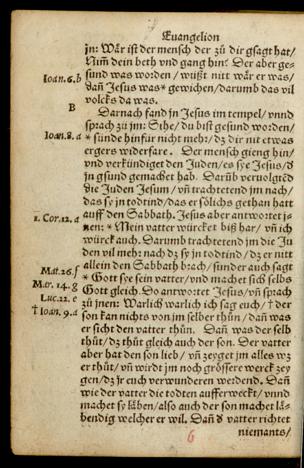 Euangelion
jn: Wär ist der mensch der zů dir gsagt hat/
Nim̃ dein beth vnd gang hin? Der aber ge-
Ioan. 6. b
sund was worden / wußt nit wär er was/
dañ Jesus was* gewichen/darumb das vil
volcks da was.
B
Darnach fand jn Jesus im tempel/vnnd
sprach zů jm: Sihe/ du bist gesund worden/
Ioan. 8. a
* sünde hinfür nicht mehr/ dz dir nit etwas
ergers widerfare. Der mensch gieng hin/
vnd verkündiget den Juden/ es sye Jesus/d
jn gsund gemachet hab. Darũb veruolgtẽd
die Juden Jesum/ vñ trachtetend jm nach/
das sy jn todtind/das er sölichs gethan hatt
1. Cor. 12. a
auff den Sabbath. Jesus aber antwortet j-
nen: * Mein vatter würcket biß har/ vñ ich
würck auch. Darumb trachtetend jm die Ju
den vil meh: nach dz sy jn todtind/ dz er nit
Mat. 26. f
allein den Sabbath brach/ sunder auch sagt
Mar. 14. g
* Gott sye sein vatter/vnd machet sich selbs
Luc. 22. e
Gott gleich. Do antwortet Jesus/vñ sprach
zů jnen: Warlich warlich ich sag euch/ † der
† Ioan. 9. a
son kan nichts von jm selber thůn/ dañ was
er sicht den vatter thůn. Dañ was der selb
thůt/dz thůt gleich auch der son. Der vatter
aber hat den son lieb/ vñ zeyget jm alles wz
er thůt/ vñ wirdt jm noch grössere werck zey
gen/dz jr euch verwunderen werdend. Dañ
wie der vatter die todten aufferweckt/ vnnd
machet sy läben/also auch der son machet lä-
bendig welcher er wil. Dañ d vatter richtet
niemants/
6